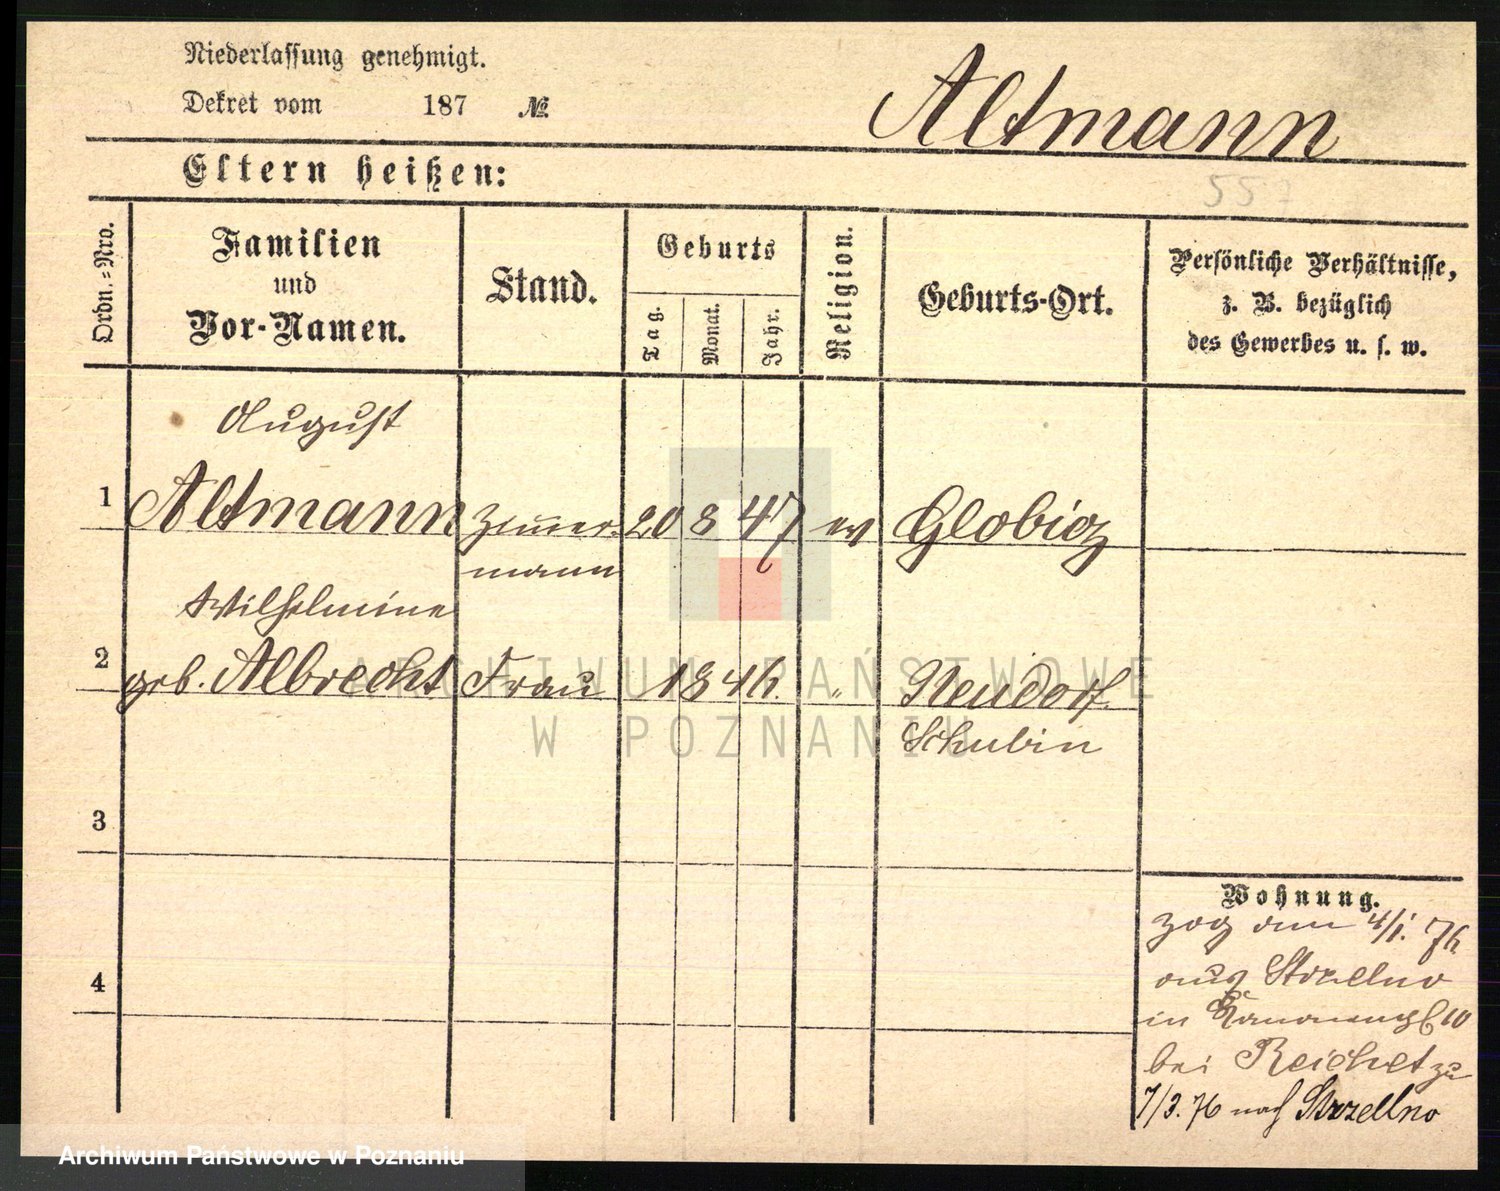 Niederlassung genehmigt.
Dekret vom 187 №
Altmann
Eltern heißen:
557
Ordn.=Nro.
Familien
und
Vor-Namen.
Stand.
Geburts
Tag.
Monat.
Jahr.
Religion.
Geburts-Ort.
Persönliche Verhältnisse,
z. B. bezüglich
des Gewerbes u. s. w.
August
1 Altmann Zimer- 20 8 47 ev Globig
mann
Wilhelmine
2 geb. Albrecht Frau 1846. " Neudorf
Schubin
3
4
Wohnung.
zog am 4/1. 76
aus Strzellno
in 10
bei Reichelt zu
7/3. 76 nach Strzellno
ARCHIWUM PAŃSTWOWE
W POZNANIU
Archiwum Państwowe w Poznaniu